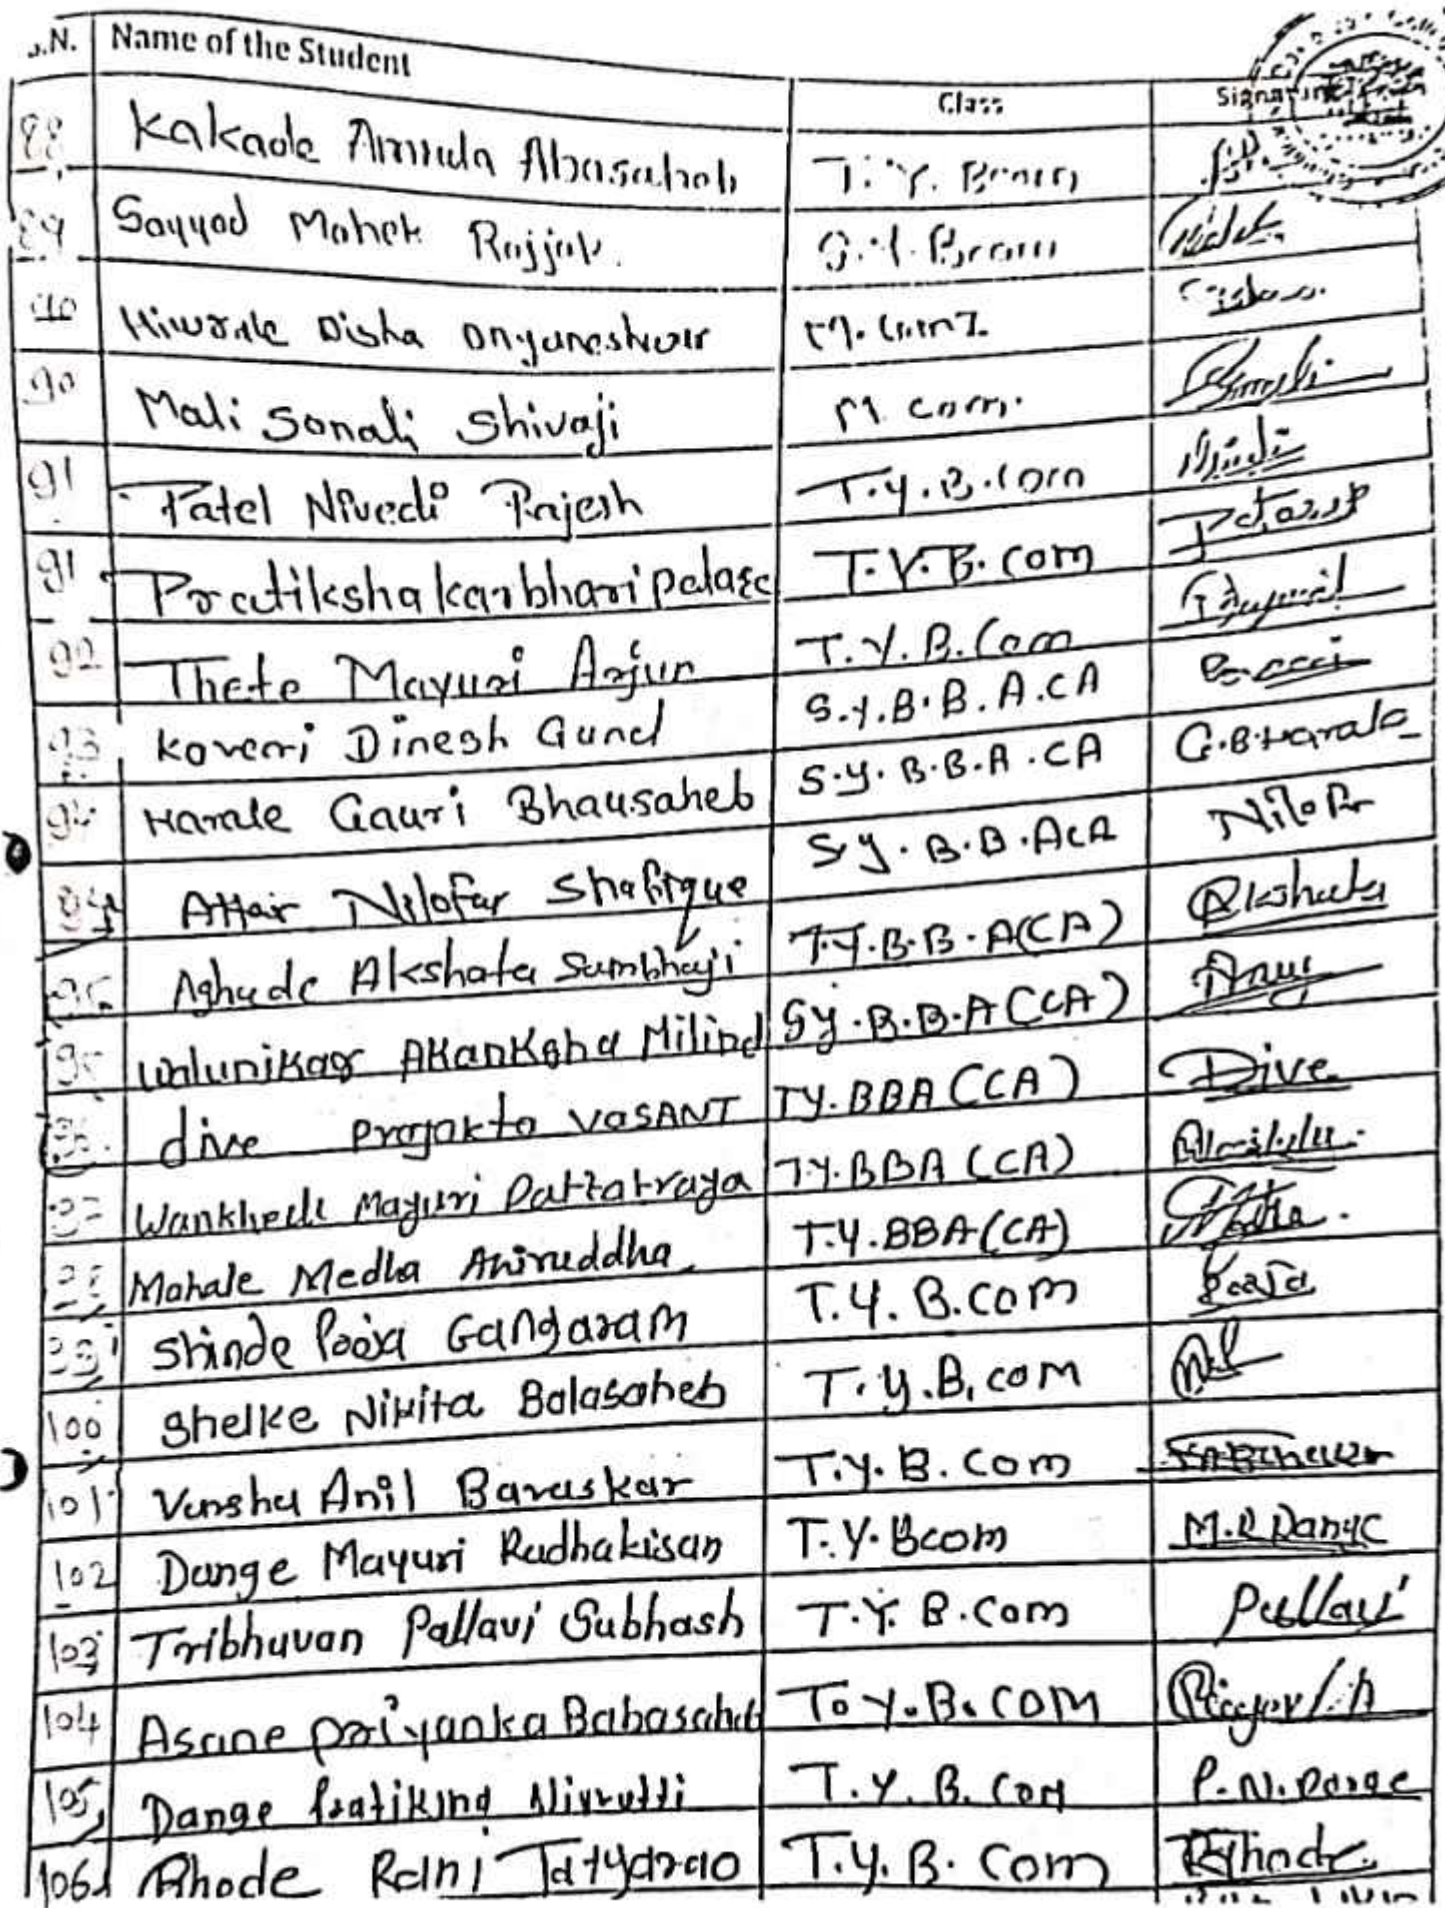 S.N. Name of the Student Class Signature
88 Kakade Amruta Abasaheb T.Y. Bcom
89 Sayyad Mahek Rajjak. S.Y. Bcom
Hiwrale Disha Dnyaneshwar M.com I
90 Mali Sonali Shivaji M com.
91 Patel Nivedi Rajesh T.y.B.com
91 Pratiksha karbhari palase T.Y.B.com
92 Thete Mayuri Arjun T.Y.B.Com
93 Kaveri Dinesh Gund S.Y.B.B.A.CA
94 Harale Gauri Bhausaheb S.y.B.B.A.CA G.B.Harale
Attar Nilofar Shafique S.y.B.B.ACA Nilofar
95 Aghade Akshata Sambhaji T.Y.B.B.A(CA) Akshata
Walunjkar Akanksha Milind Sy.B.B.A(CA)
dive Prajakta VASANT TY.BBA(CA) Dive
Wankhede Mayuri Dattatraya T.Y.BBA (CA)
Mahale Medha Aniruddha T.Y.BBA(CA) Medha.
Shinde Pooja Gangaram T.Y.B.COM Pooja
100 Shelke Nikita Balasaheb T.Y.B.COM
101 Varsha Anil Bavaskar T.Y.B.Com
102 Dange Mayuri Radhakisan T.Y.Bcom M.R Dange
103 Tribhuvan Pallavi Subhash T.Y.B.Com Pallavi
104 Asane Priyanka Babasaheb T.Y.B.COM
105 Dange Pratiksha Nivrutti T.Y.B.Com P.N.Dange
106 Rhode Rani Tatyarao T.Y.B.Com Rhode